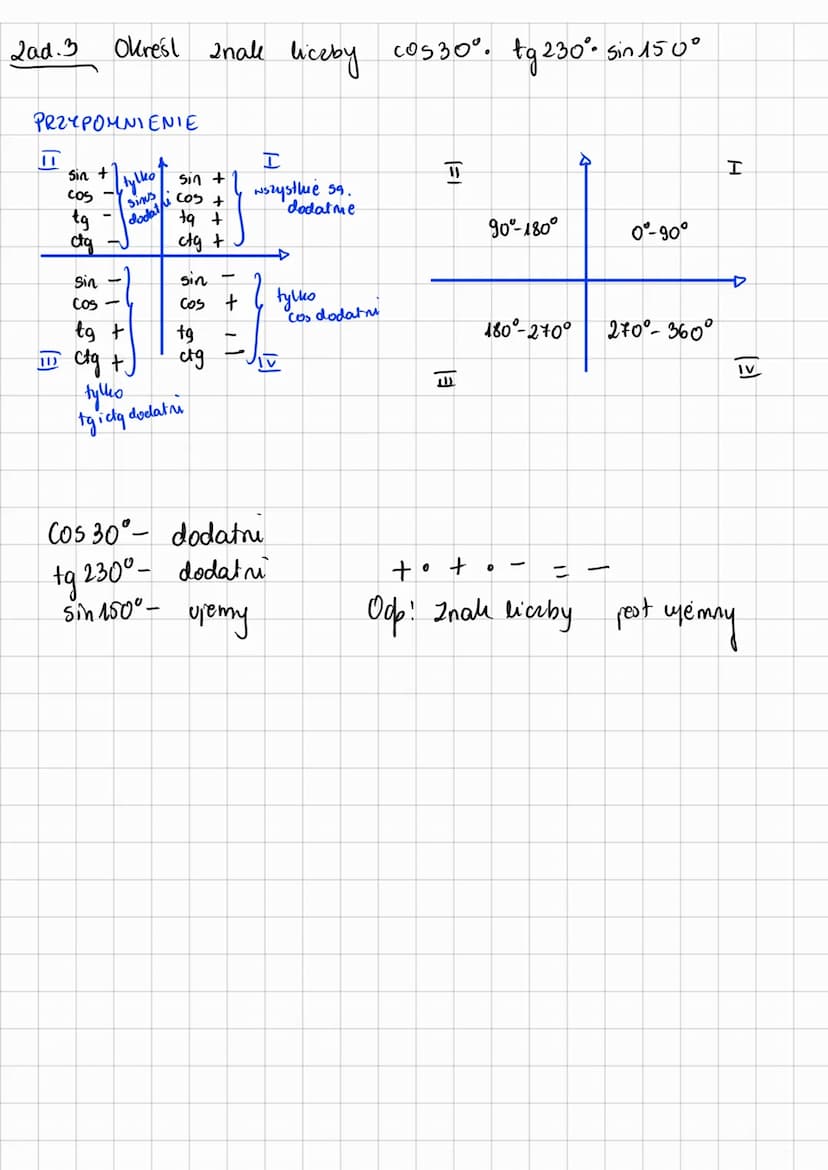 Zad.3 Określ znak liczby cos30°· tg230°· sin150°
PRZYPOMNIENIE
II
sin +
cos -
tg -
ctg -
tylko
sinus
dodatni
I
sin +
cos +
tg +
ctg +
wszystkie są.
dodatnie
sin -
cos -
tg +
III ctg +
tylko
tg i ctg dodatni
sin -
cos +
tg -
ctg -
IV
tylko
cos dodatni
II
I
90°-180°
0°-90°
180°-270°
270°-360°
III
IV
cos 30° - dodatni
tg 230° - dodatni
sin 150° - ujemy
+ · + · - = -
Odp! Znak liczby jest ujemny